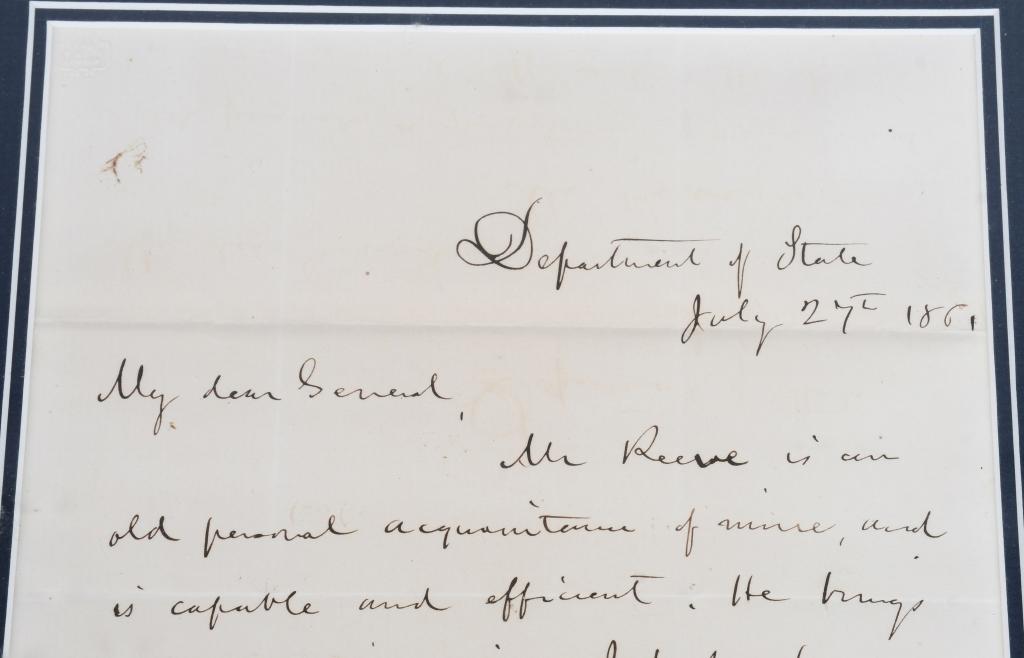 Department of State
July 27th 1861
My dear General,
Mr Reeve is an
old personal acquaintance of mine, and
is capable and efficient. He brings